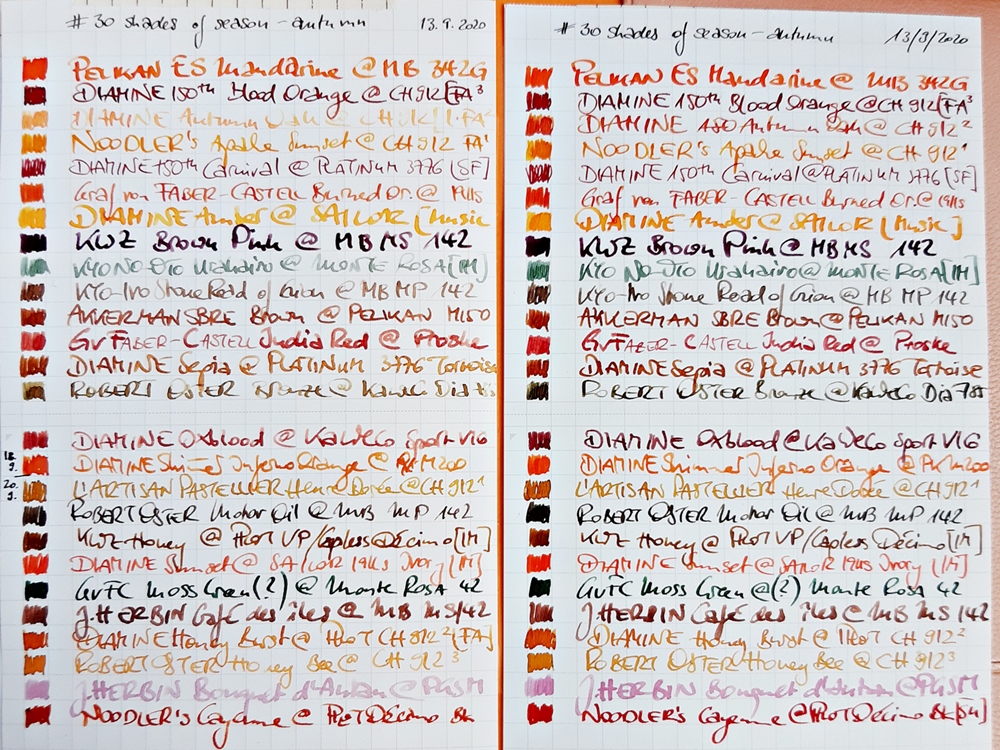 # 30 shades of season - autumn 13.9.2020
PELIKAN ES Mandarine @ MB 342G
DIAMINE 150th Blood Orange @ CH 912 [FA³
DIAMINE Autumn Oak @ CH 912
NOODLER's Apache Sunset @ CH 912 FA¹
DIAMINE 150th Carnival @ PLATINUM 3776 [SF]
Graf von FABER-CASTELL Burned Or. @ 1911s
DIAMINE Amber @ SAILOR [Music
KWZ Brown Pink @ MB MS 142
KYO NO-OTO Urahairo @ MONTE ROSA [IM]
KYO-Iro Stone Road of Gion @ MB MP 142
AKKERMAN SBRE Brown @ PELIKAN M150
GvFABER-CASTELL India Red @ Proske
DIAMINE Sepia @ PLATINUM 3776 Tortoise
ROBERT OSTER Bronze @ KaWeCo Dia
DIAMINE Oxblood @ KaWeCo Sport V16
18. 9. DIAMINE Shimmer Inferno Orange @ M200
20. 9. L'ARTISAN PASTELLIER Henre Dorée @ CH 912¹
ROBERT OSTER Motor Oil @ MB MP 142
KWZ-Honey @ PILOT VP/Capless Décimo [IM]
DIAMINE Sunset @ SAILOR 1911s Ivory [IM]
GvFC Moss Green (?) @ Monte Rosa 42
J.HERBIN Café des îles @ MB MS 142
DIAMINE Honey Burst @ PILOT CH 912² [FA]
ROBERT OSTER Honey Bee @ CH 912³
J.HERBIN Bouquet d'Antan @
NOODLER's Cayenne @ PILOT Décimo BK
# 30 shades of season - autumn 13/9/2020
PELIKAN ES Mandarine @ MB 342G
DIAMINE 150th Blood Orange @ CH 912 [FA³
DIAMINE Autumn Oak @ CH 912²
NOODLER's Apache Sunset @ CH 912¹
DIAMINE 150th Carnival @ PLATINUM 3776 [SF]
Graf von FABER-CASTELL Burned Or. @ 1911s
DIAMINE Amber @ SAILOR [Music]
KWZ Brown Pink @ MB MS 142
KYO NO-OTO Urahairo @ MONTE ROSA [IM]
KYO-Iro Stone Road of Gion @ MB MP 142
AKKERMAN SBRE Brown @ PELIKAN M150
GvFABER-CASTELL India Red @ Proske
DIAMINE Sepia @ PLATINUM 3776 Tortoise
ROBERT OSTER Bronze @ KaWeCo Dia
DIAMINE Oxblood @ KaWeCo Sport V16
DIAMINE Shimmer Inferno Orange @ M200
L'ARTISAN PASTELLIER Henre Dorée @ CH 912¹
ROBERT OSTER Motor Oil @ MB MP 142
KWZ Honey @ PILOT VP/Capless Décimo [IM]
DIAMINE Sunset @ SAILOR 1911s Ivory [IM]
GvFC Moss Green @ (?) Monte Rosa 42
J.HERBIN Café des îles @ MB MS 142
DIAMINE Honey Burst @ PILOT CH 912²
ROBERT OSTER Honey Bee @ CH 912³
J.HERBIN Bouquet d'Antan @
NOODLER's Cayenne @ PILOT Décimo BK